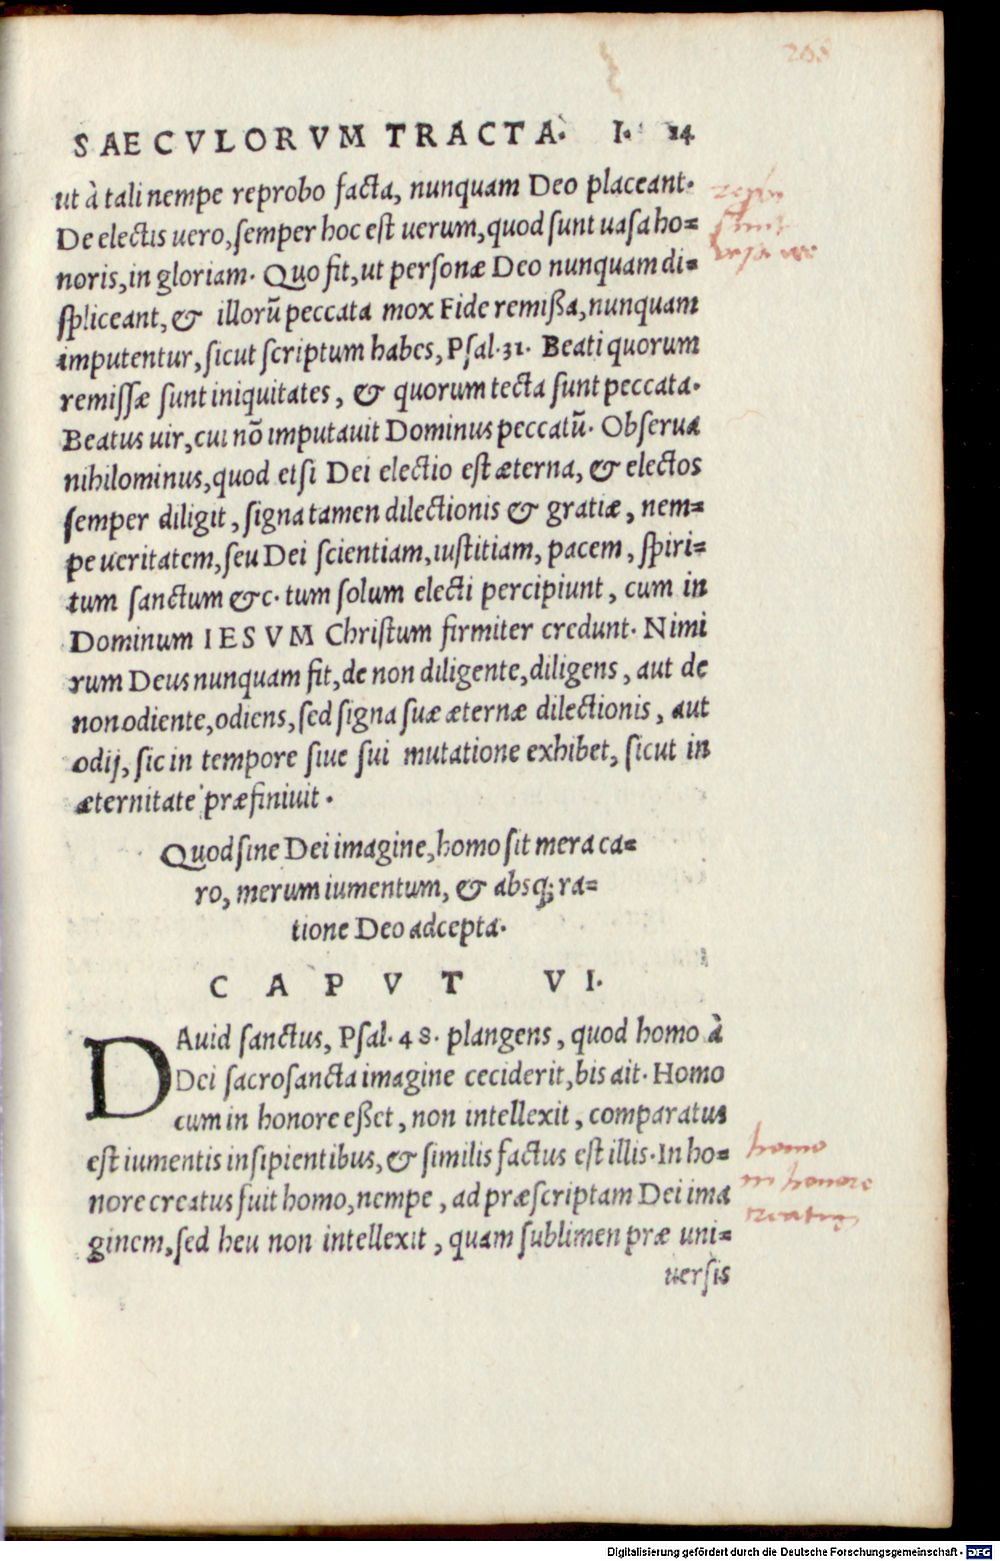 208
SAECVLORVM TRACTA. I. 14
ut à tali nempe reprobo facta, nunquam Deo placeant.
De electis uero, semper hoc est uerum, quod sunt uasa ho=
noris, in gloriam. Quo fit, ut personæ Deo nunquam di=
spliceant, & illorū peccata mox Fide remißa, nunquam
imputentur, sicut scriptum habes, Psal. 31. Beati quorum
remissæ sunt iniquitates, & quorum tecta sunt peccata.
Beatus uir, cui nō imputauit Dominus peccatū. Obserua
nihilominus, quod etsi Dei electio est æterna, & electos
semper diligit, signa tamen dilectionis & gratiæ, nem=
pe ueritatem, seu Dei scientiam, iustitiam, pacem, spiri=
tum sanctum &c. tum solum electi percipiunt, cum in
Dominum IESVM Christum firmiter credunt. Nimi
rum Deus nunquam fit, de non diligente, diligens, aut de
non odiente, odiens, sed signa suæ æternæ dilectionis, aut
odij, sic in tempore siue sui mutatione exhibet, sicut in
æternitate præfiniuit.
Quod sine Dei imagine, homo sit mera ca=
ro, merum iumentum, & absq; ra=
tione Deo adcepta.
CAPVT VI.
DAuid sanctus, Psal. 48. plangens, quod homo à
Dei sacrosancta imagine ceciderit, bis ait. Homo
cum in honore eßet, non intellexit, comparatus
est iumentis insipientibus, & similis factus est illis. In ho=
nore creatus fuit homo, nempe, ad præscriptam Dei ima
ginem, sed heu non intellexit, quam sublimen præ uni=
uersis
homo
in honore
creatus
Digitalisierung gefördert durch die Deutsche Forschungsgemeinschaft - DFG